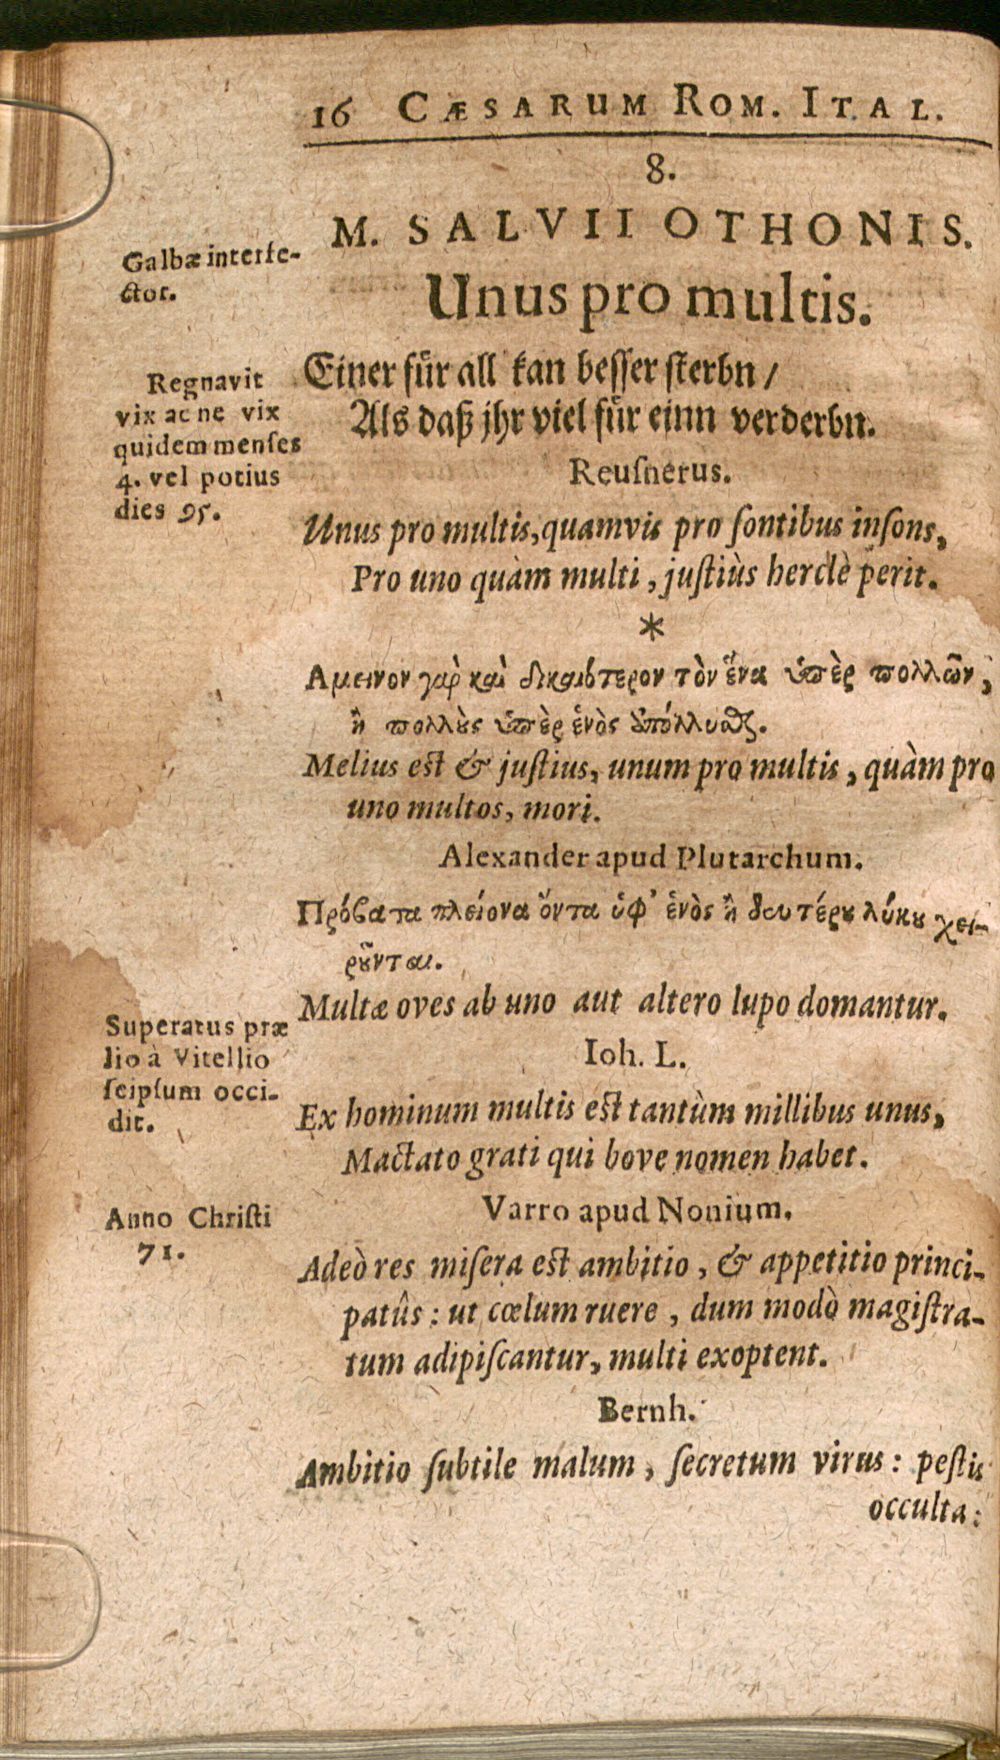 16 CÆSARUM ROM. ITAL.
8.
M. SALVII OTHONIS.
Unus pro multis.
Galbæ interfe-
ctor.
Einer für all kan besser sterbn /
Als daß jhr viel für einn verderbn.
Regnavit
vix ac ne vix
quidem menſes
4. vel potius
dies 95.
Reuſnerus.
Unus pro multis, quamvis pro ſontibus inſons,
Pro uno quàm multi, juſtiùs herclè perit.
*
Αμεινον γὰρ καὶ δικαιότερον τὸν ἕνα ὑπὲρ πολλῶν,
ἢ πολλȣ̀ς ὑπὲρ ἑνὸς ἀπόλλυσθαι.
Melius est & juſtius, unum pro multis, quàm pro
uno multos, mori.
Alexander apud Plutarchum.
Πρόϐατα πλείονα ὄντα ὑφ' ἑνὸς ἢ δευτέρȣ λύκȣ χει-
ρȣ͂νται.
Multæ oves ab uno aut altero lupo domantur.
Superatus præ
lio à Vitellio
ſeipſum occi-
dit.
Ioh. L.
Ex hominum multis est tantùm millibus unus,
Mactato grati qui bove nomen habet.
Anno Chriſti
71.
Varro apud Nonium.
Adeò res miſera est ambitio, & appetitio princi-
patûs: ut cœlum ruere, dum modò magiſtra-
tum adipiſcantur, multi exoptent.
Bernh.
Ambitio ſubtile malum, ſecretum virus: peſtis
occulta: